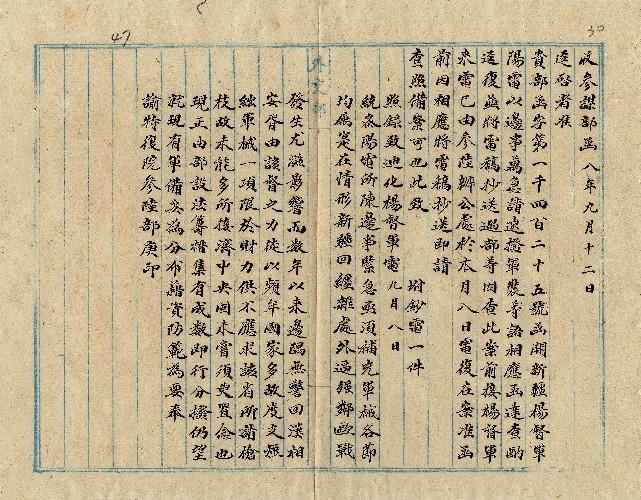 30
47
收參謀部函八年九月十二日
逕啓者准
貴部函字第一千四百二十五號函開新疆楊督軍
陽電以邊事萬急請速撥軍裝等語相應函達查酌
逕復並將電稿抄送過部等因查此案前接楊督軍
來電已由參陸辦公處於本月八日電復在案准函
前因相應將電稿抄送即請
查照備案可也此致
附鈔電一件
照錄致迪化楊督軍電九月八日
統密陽電所陳邊事緊急亟須補充軍械各節
均屬實在情形新疆回纏雜處外逼強鄰歐戰
發生尤滋影響而數年以來邊陲無警回漢相
安胥由該督之力徒以頻年國家多故度支短
絀軍械一項限於財力供不應求該省所請槍
枝故未能多所接濟中央固未嘗須臾置念也
現正由部設法籌措集有成數即行分撥仍望
就現有軍備妥為分布藉資防範為要奉
諭特復院參陸部庚印